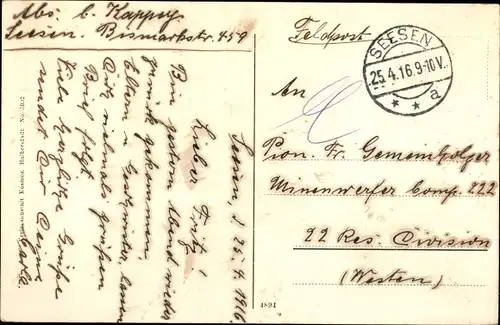 Abs. C. Kappey
Seesen. Bismarkstr. 459
Feldpost
SEESEN
25.4.16.9-10V.
* * a
An
Pion. Fr. Gemeinholzer
Minenwerfer Comp. 222
22 Res. Division
(Westen)
Seesen d 25.4.1916.
Lieber Fritz!
Bin gestern Abend wieder
gekommen.
Eltern u Geschwister lassen
Dich vielmals grüßen
Brief folgt.
Viele herzliche Grüße
sendet Dir Deine
Carla.
Kosmos, Halberstadt No.
4894